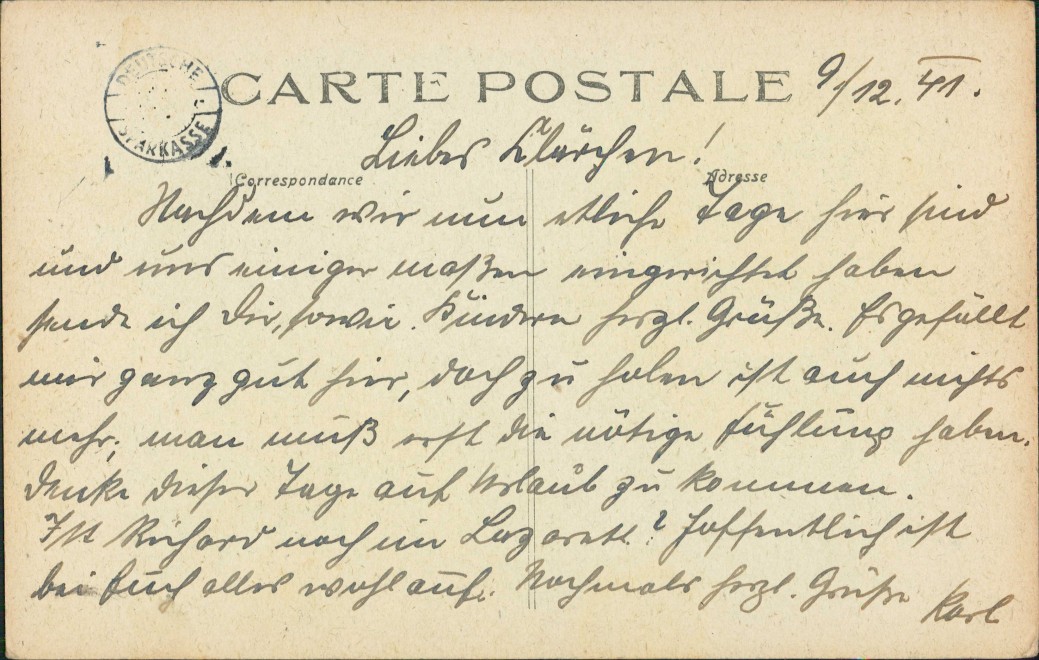 DEUTSCHE
SPARKASSE
CARTE POSTALE 9/12. 41.
Liebes Klärchen!
Correspondance Adresse
Nachdem wir nun etliche Tage hier sind
und uns einiger maßen eingerichtet haben
sende ich Dir, sowie Kindern herzl. Grüße. Es gefällt
mir ganz gut hier, doch zu holen ist auch nichts
mehr, man muß erst die nötige Fühlung haben.
Denke dieser Tage auf Urlaub zu kommen.
Ist Richard noch im Lazarett? Hoffentlich ist
bei Euch alles wohl auf. Nochmals herzl. Grüße
Karl